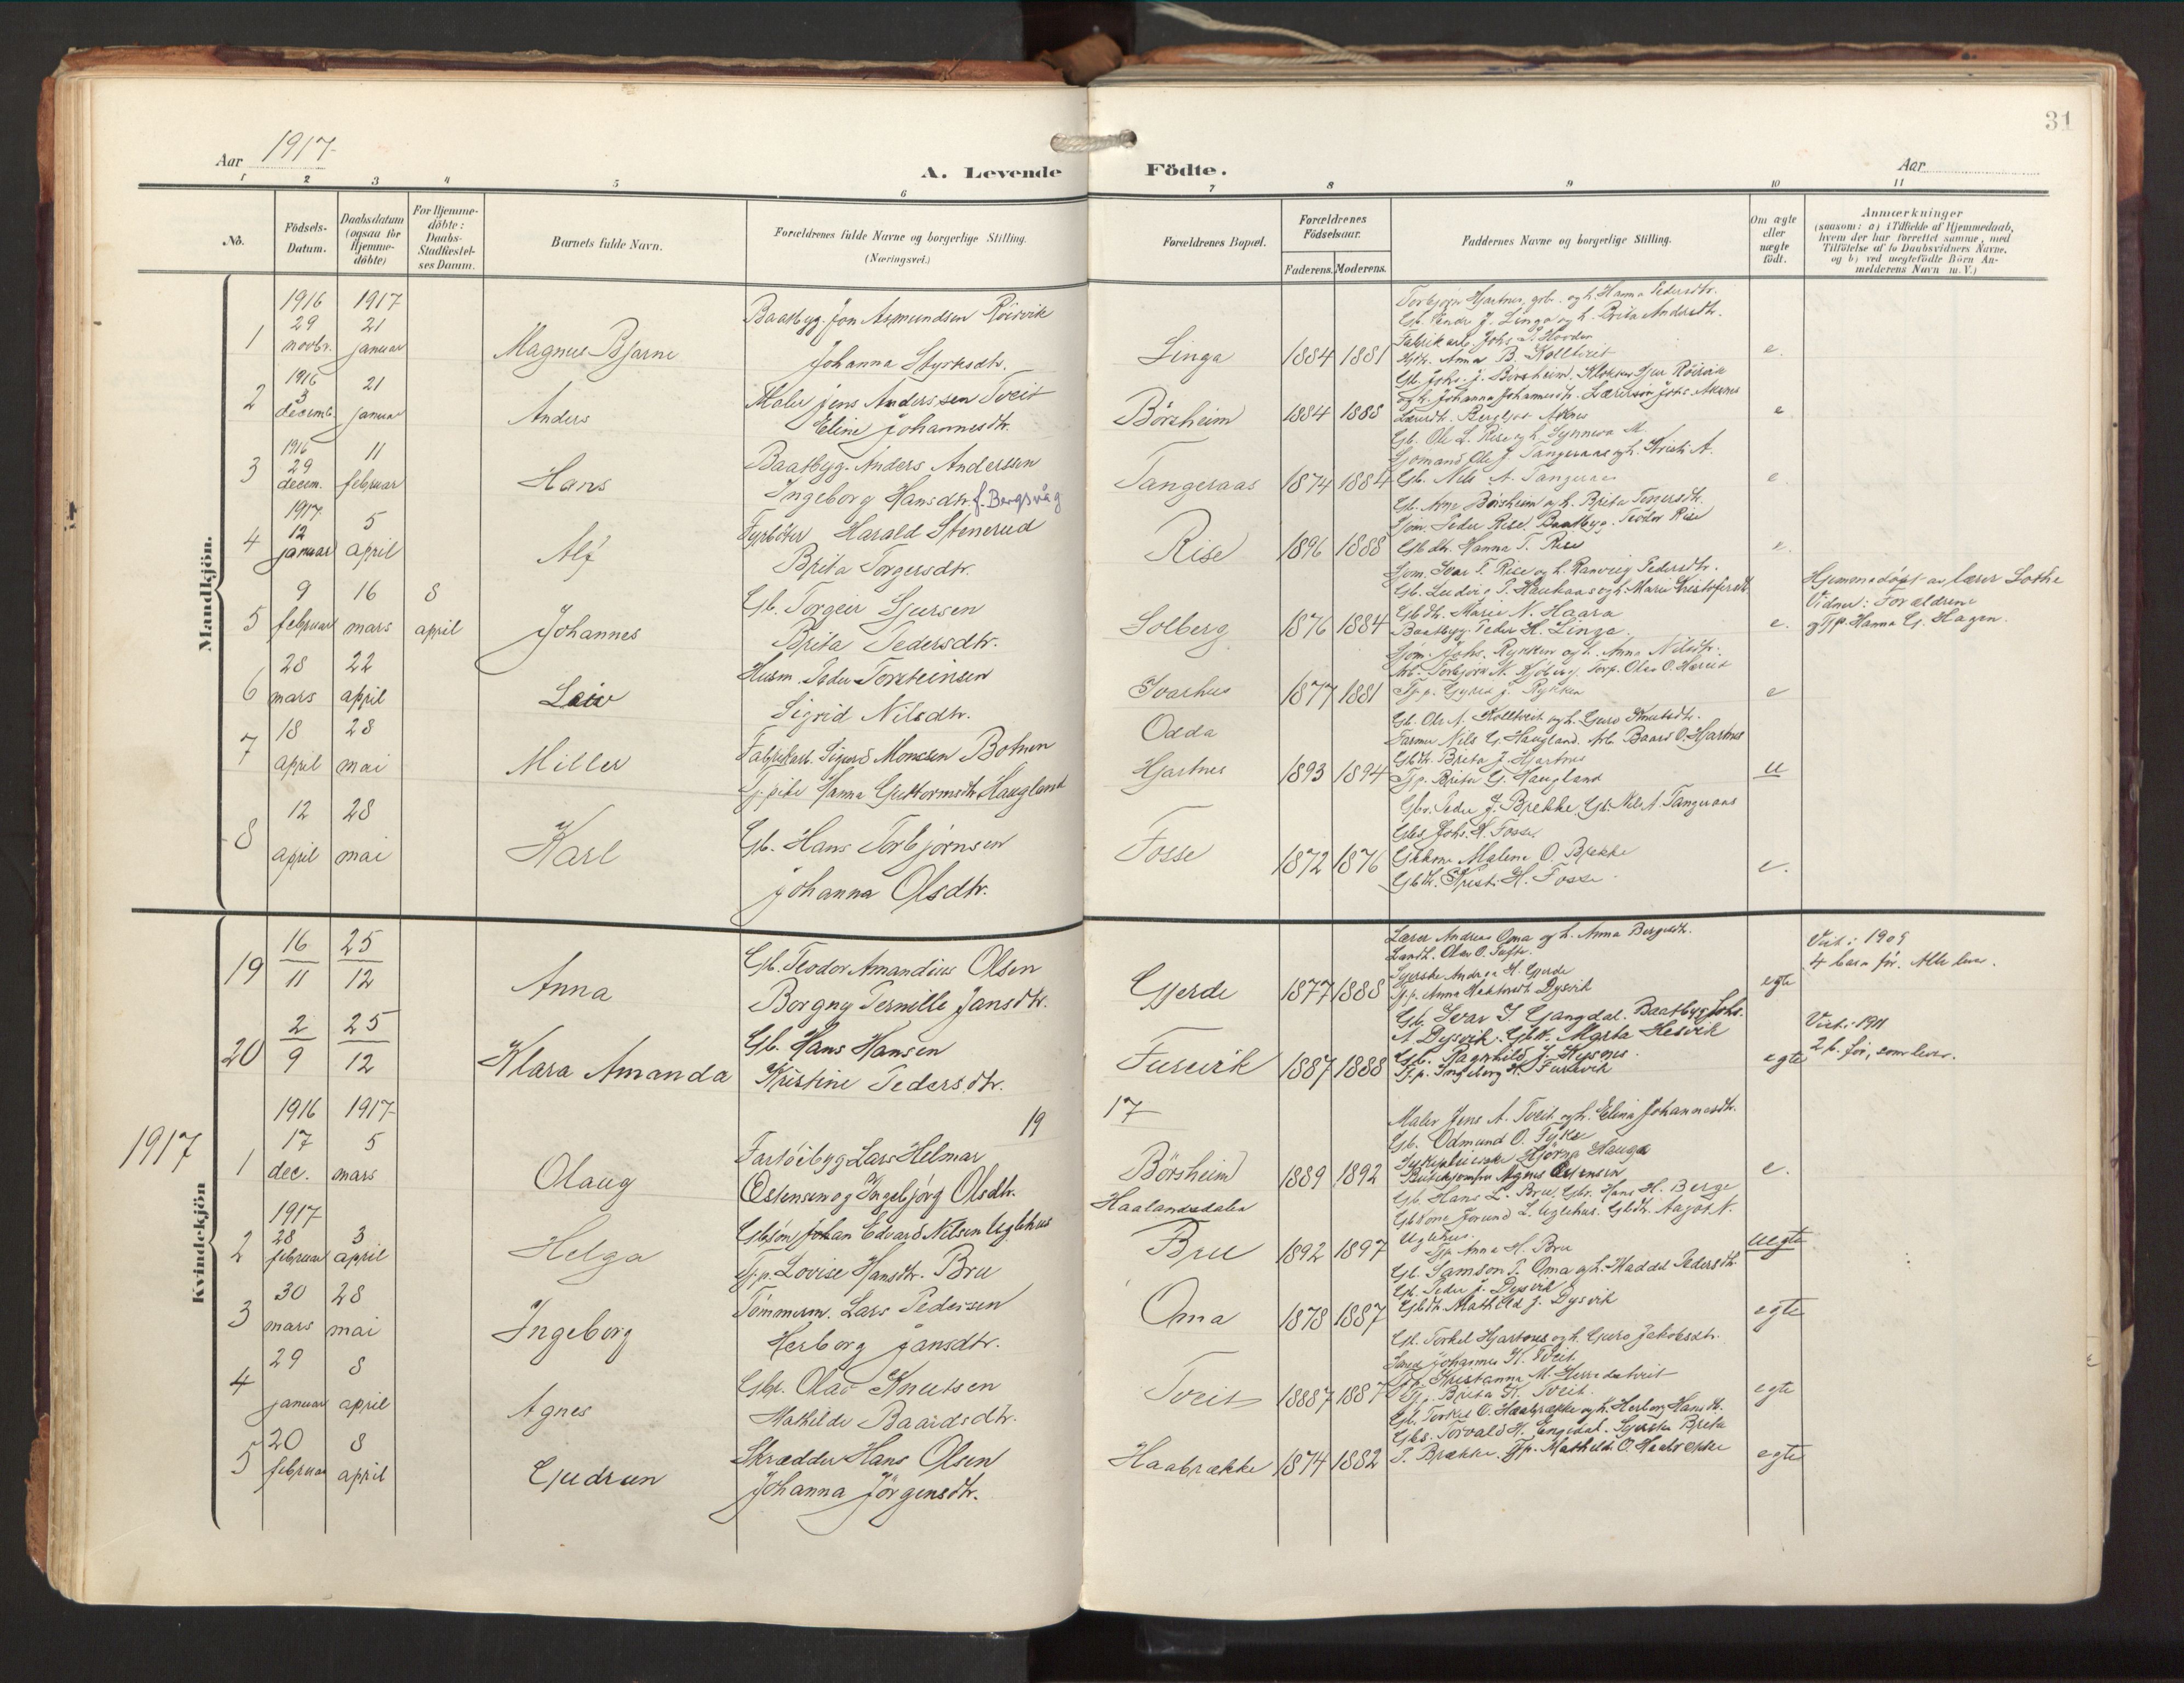 31
Aar 1917
A. Levende Födte.
Aar
1 2 3 4 5 6 7 8 9 10 11
No.
Födsels-Datum.
Daabsdatum (ogsaa for Hjemme-döbte)
For Hjemme-döbte: Daabs-Stadfæstel-ses Datum.
Barnets fulde Navn.
Forældrenes fulde Navne og borgerlige Stilling. (Næringsvei.)
Forældrenes Bopæl.
Forældrenes Födselsaar.
Faderens. Moderens.
Faddernes Navne og borgerlige Stilling.
Om ægte eller uægte födt.
Anmærkninger
(saasom: a) i Tilfælde af Hjemmedaab,
hvem der har forrettet samme, med
Tilföielse af to Daabsvidners Navne,
og b) ved uægtefödte Börn An-
melderens Navn m. V.)
Mandkjön.
1
1916 29 novbr.
1917 21 januar
Magnus Bjarne
Baatbyg. Jon Asmundsen Röisvik
Johanna Styrksdtr.
Linga
1884 1881
Torbjörn Hjartnes, gbr. og h. Hanna Pedersdtr.
Gb. Endre J. Linga og h. Brita Andersdtr.
Fabrikarb. Johs.
Anna B. Kolltveit
e.
2
1916 3 decemb.
21 januar
Anders
Maler Jens Anderssen Tveit
Eline Johannesdtr.
Börsheim
1884 1888
Gb. Johs. J. Börsheim. Klokker Sjur Röisvik
og h. Johanna Johannesdtr.
e
3
1916 29 decem.
11 februar
Hans
Baatbygg. Anders Anderssen
Ingeborg Hansdtr. f. Bergsvåg
Tangeraas
1874 1884
Gb. Ole L. Rise og h. Synneva M.
Sjömand Ole J. Tangeraas og h. Kristi A.
Gb. Nils A. Tangeraas
e
4
1917 12 januar
5 april
Alf
Fyrböter Harald Stenerud
Brita Torgersdtr.
Rise
1896 1888
Gb. Arne Börsheim og h. Brita Tonersdtr.
Sjöm. Peder Rise. Baatbyg. Teodor Rise
Gbdtr. Hanna T. Rise
e.
5
9 februar
16 mars
8 april
Johannes
Gb. Torgeir Sjursen
Brita Pedersdtr.
Solberg
1876 1884
Sjöm. Ivar T. Rise og h. Ranveig Pedersdtr.
Gb. Ludvig P. Haukaas og h. Marie Kristofersdtr.
Gbdtr. Marie N. Haara
Baatbyg. Peder H. Linga.
e.
Hjemmedöpt av lærer Lothe
Vidner: Forældrene
og Tjp. Hanna G. Hagen.
6
28 mars
22 april
Leiv
Husm. Peder Torsteinsen
Sigrid Nilsdtr.
Ivarhus
1877 1881
Sjöm. Johs. Rykken og h. Anna Nilsdtr.
Arb. Torbjörn N. Kjöberg. Torp. Olav O. Hereid
Tjp. Gyrid J. Rykken
e
7
18 april
28 mai
Miller
Fabrikarb. Sigurd Monssen Botnen
Tj.pike Hanna Guttormsdtr. Haugland
Odda
Hjartnes
1893 1894
Gb. Ole A. Kolltveit og h. Guro Knutsdtr.
Farmer Nils G. Haugland. Arb. Baard O. Hjartnes
Gbdtr. Brita J. Hjartnes
Tjp. Brita G. Haugland
u
8
12 april
28 mai
Karl
Gb. Hans Torbjörnsen
Johanna Olsdtr.
Fosse
1872 1876
Gbr. Peder J. Brekke, Gb. Nils A. Tangeraas
Gbs. Johs. H. Fosse.
Gbkone Malena O. Brekke
Gbdtr. Kristi H. Fosse.
e.
Kvindekjön
19
16/11
25/12
Anna
Gb. Teodor Amandius Olsen
Borgny Pernille Jansdtr.
Gjerde
1877 1888
Lærer Andreas Oma og h. Anna Bergesdtr.
Landh. Olav O. Tufte.
Syerske Andrea H. Gjerde
Tj.p. Anna Dysvik
egte
Viet i 1909
4 barn för. Alle lever.
20
2/9
25/12
Klara Amanda
Gb. Hans Hansen
Kristine Pedersdtr.
Furevik
1887 1888
Gb. Ivar I. Gangdal. Baatbygg Johs.
A. Dysvik. Gbk. Marta Hesvik
Gb. Ragnhild J. Kysnes.
Tj.p. Ingeborg H. Furevik
egte
Viet i 1911
2 b. för, som lever.
1917
1916 1917
19 17
1
17 dec.
5 mars
Olaug
Fartöibyg. Lars Helmar
Östensen og Ingebjörg Olsdtr.
Börsheim
1889 1892
Maler Jens A. Tveit og h. Eline Johannesdtr.
Gb. Odmund O. Fykse
Sykepleierske Hjörna Hauga
Butikjomfru Agnes Östensen
e.
2
1917 28 februar
3 april
Helga
Gbsön Johan Edvard Nilsen Uglehus
Tj.p. Lovise Hansdtr. Bru
Haalandsdalen
Bru
1892 1897
Gb. Hans L. Bru, Gbr. Hans H. Berge
Gbkone Jorund L. Uglehus. Gbdtr. Aagot N.
Uglehus.
Tjp. Anna H. Bru
uegte
3
30 mars
28 mai
Ingeborg
Tömmerm. Lars Pedersen
Herborg Jansdtr.
Oma
1878 1887
Gb. Samson P. Oma og h. Maddel Pedersdtr.
Gb. Peder J. Dysvik
Gbdtr. Mathild J. Dysvik
egte
4
29 januar
8 april
Agnes
Gbr. Olav Knutsen
Mathilde Baardsdtr.
Tveit
1887 1887
Gb. Torkel Hjartnes og h. Guro Jakobsdtr.
Johannes K. Tveit.
Tjp. Kristanna M. Herredstveit
Tjp. Brita K. Tveit.
egte
5
20 februar
8 april
Gudrun
Skrædder Hans Olsen
Johanna Jörgensdtr.
Haabrække
1874 1882
Gb. Torkel O. Haabrække og h. Herborg Hansdtr.
Gbs. Torvald H. Engedal. Syerske Brita
P. Brække. Tjp. Mathilde O. Haabrække
egte